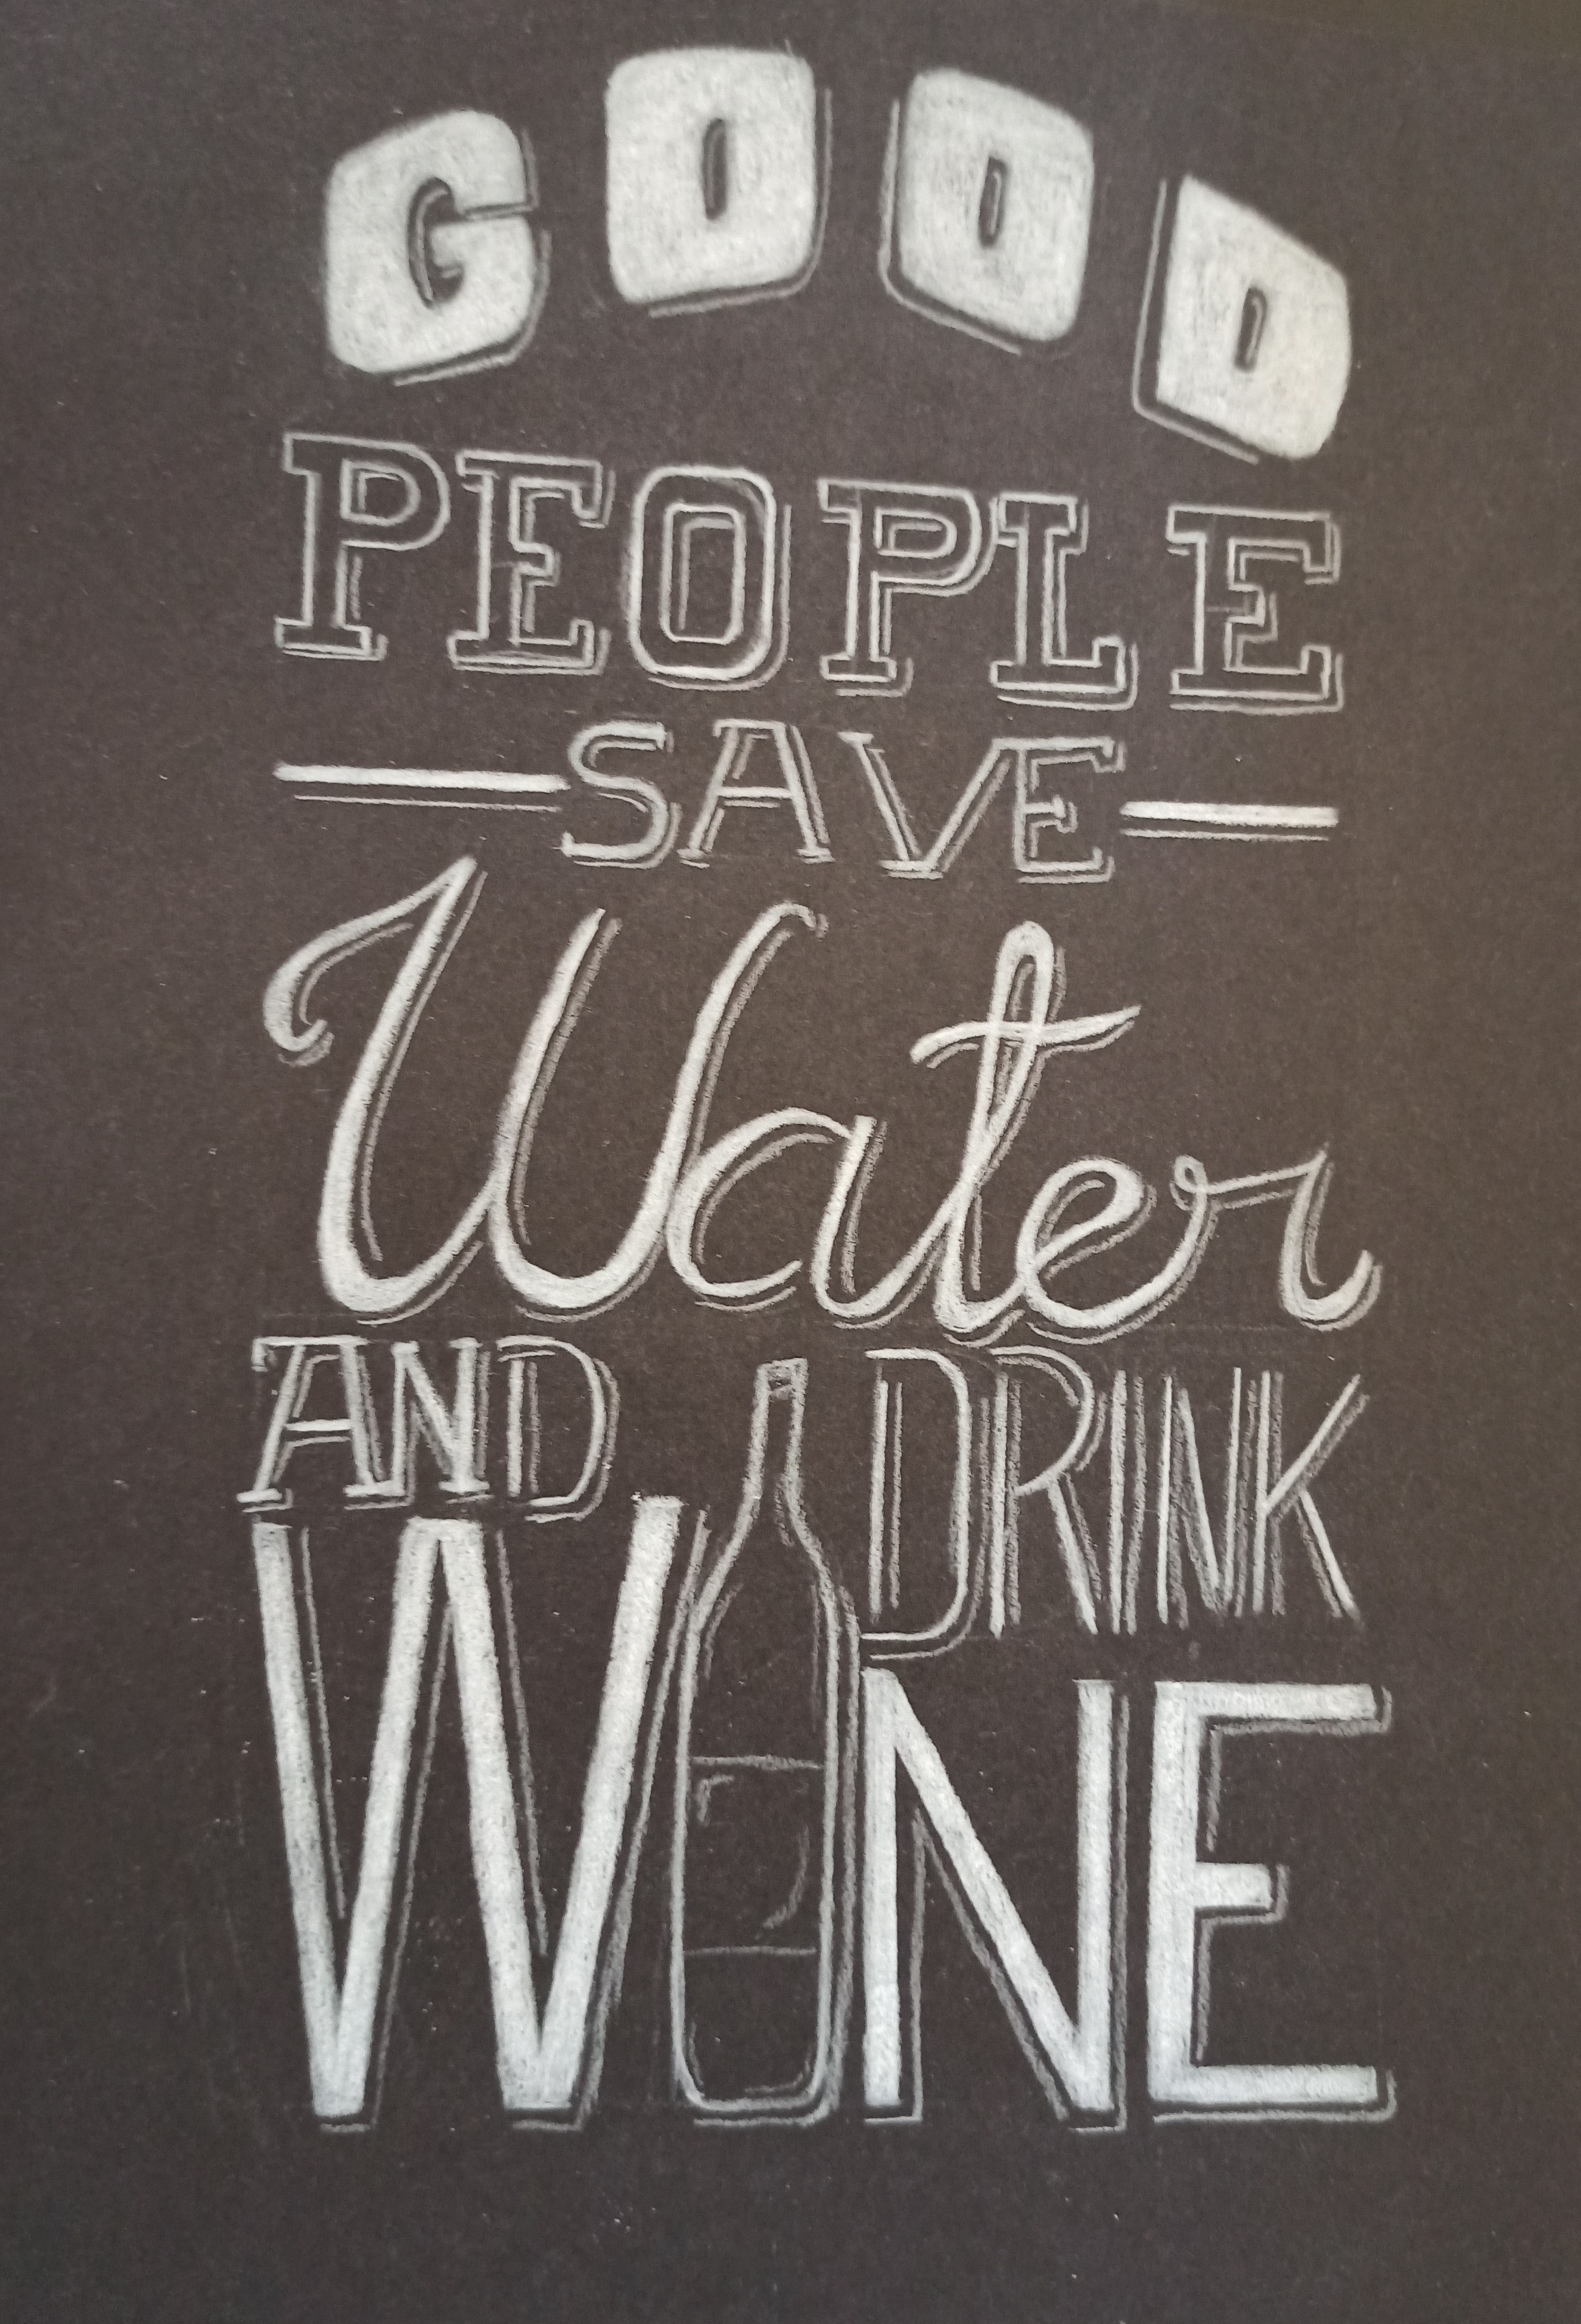 GOOD
PEOPLE
SAVE
Water
AND DRINK
WINE